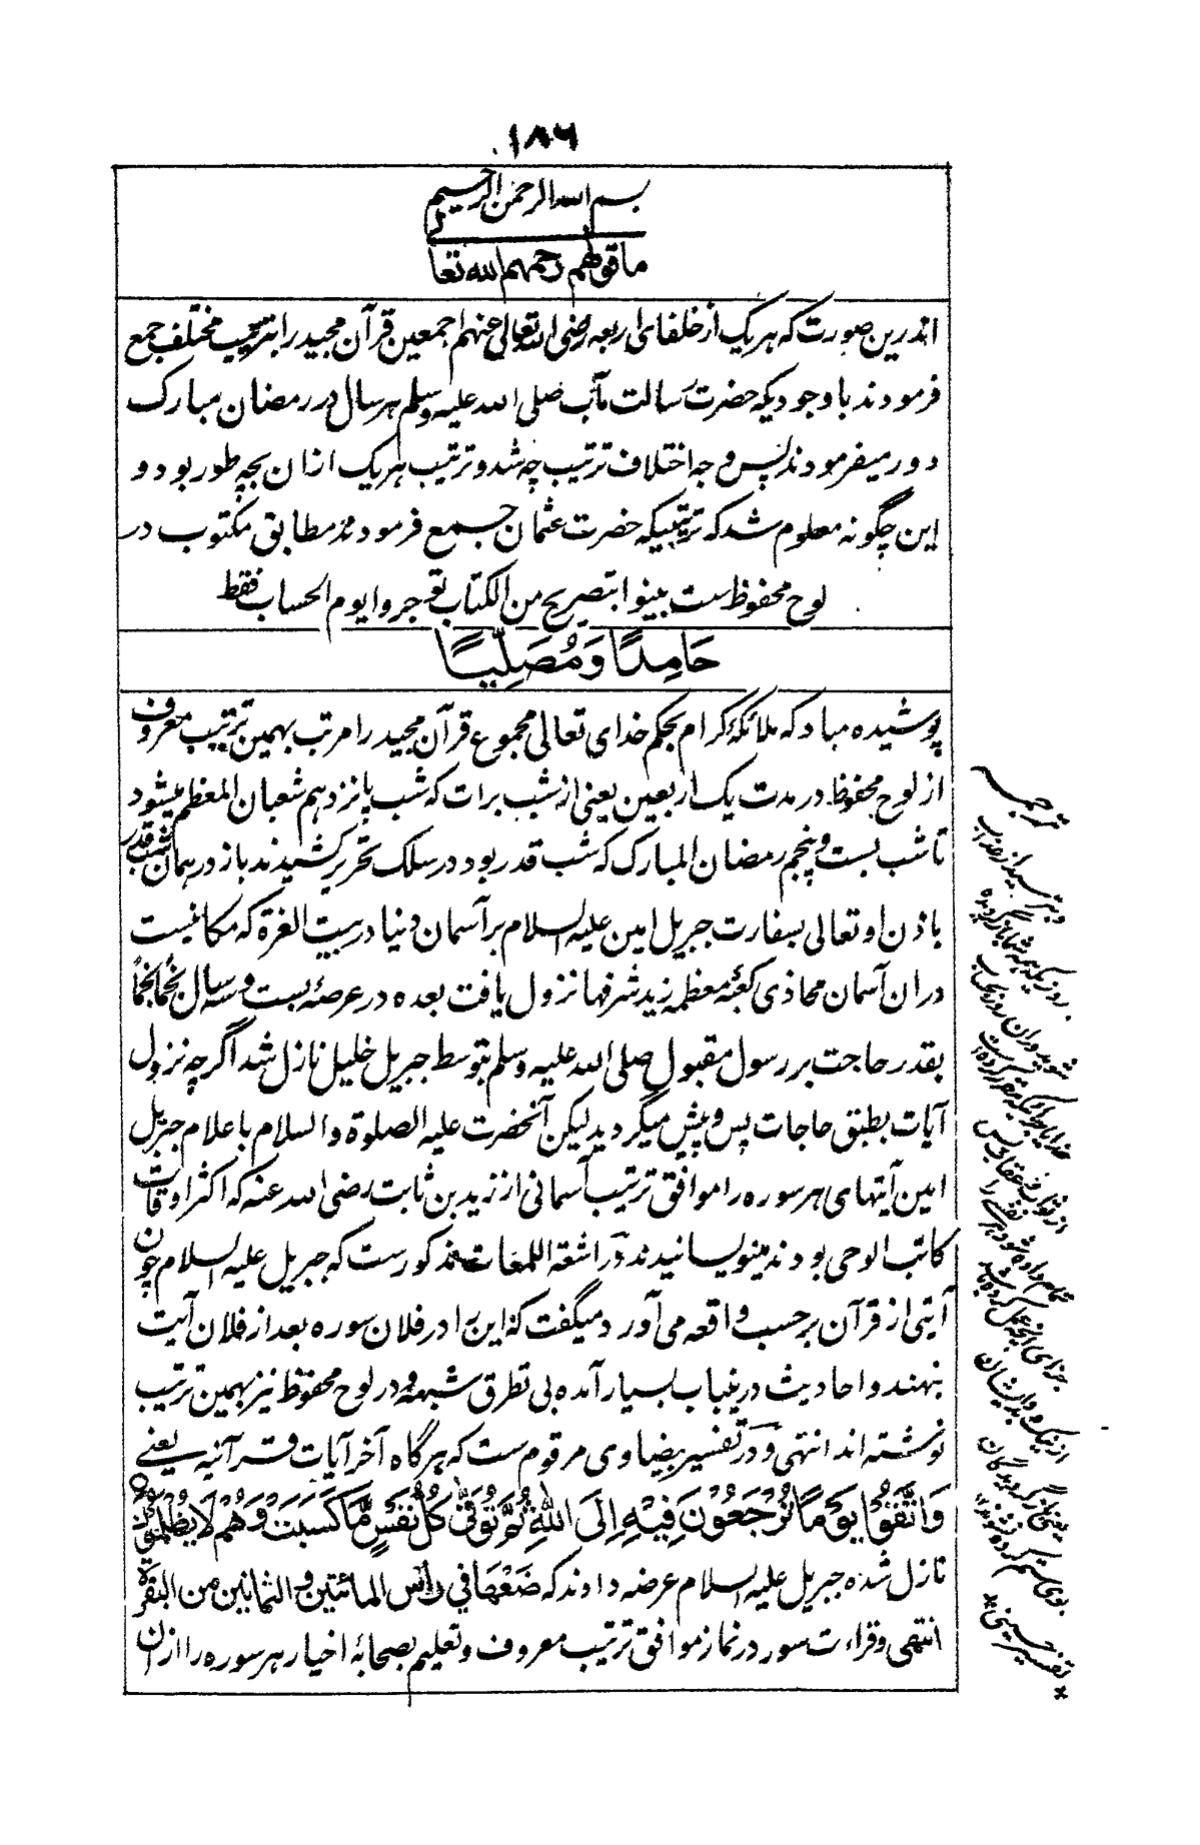 ۱۸۶
بسم الله الرحمن الرحیم
ما قولهم رحمهم الله تعا
اندرین صورت که هر یک از خلفای اربعه رضی الله تعالی عنهم اجمعین قرآن مجید را بترتیب مختلف جمع
فرمودند باوجودیکه حضرت رسالت مآب صلی الله علیه وسلم هر سال در رمضان مبارک
دور میفرمودند پس وجه اختلاف ترتیب چه شد و ترتیب هر یک ازان بچه طور بود و
این چگونه معلوم شد که ترتیبیکه حضرت عثمان جمع فرمودند مطابق مکتوب در
لوح محفوظ ست بینوا بتصریح من الکتاب توجروا یوم الحساب فقط
حَامِدًا وَمُصَلِّیًا
پوشیده مباد که ملائکۀ کرام بحکم خدای تعالی مجموع قرآن مجید را مرتب بهمین ترتیب معروف
از لوح محفوظ در مدت یک اربعین یعنی از شب برات که شب پانزدهم شعبان المعظم میشود
تا شب بست و پنجم رمضان المبارک که شب قدر بود در سلک تحریر کشیدند باز در همان شب قدر
باذن او تعالی بسفارت جبریل امین علیه السلام بر آسمان دنیا در بیت العزة که مکانیست
دران آسمان محاذی کعبۀ معظمه زید شرفها نزول یافت بعده در عرصۀ بست و سه سال نجمًا نجمًا
بقدر حاجت بر رسول مقبول صلی الله علیه وسلم بتوسط جبریل خلیل نازل شد اگرچه نزول
آیات بطبق حاجات پس و پیش میگردید لیکن آنحضرت علیه الصلوة والسلام باعلام جبریل
امین آیتهای هر سوره را موافق ترتیب آسمانی از زید بن ثابت رضی الله عنه که اکثر اوقات
کاتب الوحی بودند مینویسانیدند در اشعة اللمعات مذکورست که جبریل علیه السلام چون
آیتی از قرآن بر حسب واقعه می آورد میگفت که این را در فلان سوره بعد از فلان آیت
بنهند و احادیث درینباب بسیار آمده بی تطرق شبهه و در لوح محفوظ نیز بهمین ترتیب
نوشته اند انتهی و در تفسیر بیضاوی مرقوم ست که هرگاه آخر آیات قرآنیه یعنے
وَاتَّقُوا یَوْمًا تُرْجَعُوْنَ فِیْهِ اِلَی اللّٰهِ ثُمَّ تُوَفّٰی کُلُّ نَفْسٍ مَّا کَسَبَتْ وَهُمْ لَا یُظْلَمُوْنَ
نازل شده جبریل علیه السلام عرضه داوند که ضَعْهَا فی رأس المائتین والثمانین من البقرة
انتهی و قراءت سور در نماز موافق ترتیب معروف و تعلیم بصحابۀ اخیار هر سوره را ازان
ترجمہ
و بترسید از عذاب
روزیکه همه شما باز گردیده
شوید دران روز بحساب
تمام داده شود هر نفسے را
جزای آنچه عمل کرده باشد
از نیک و بد و ایشان
تفسیر حسینی